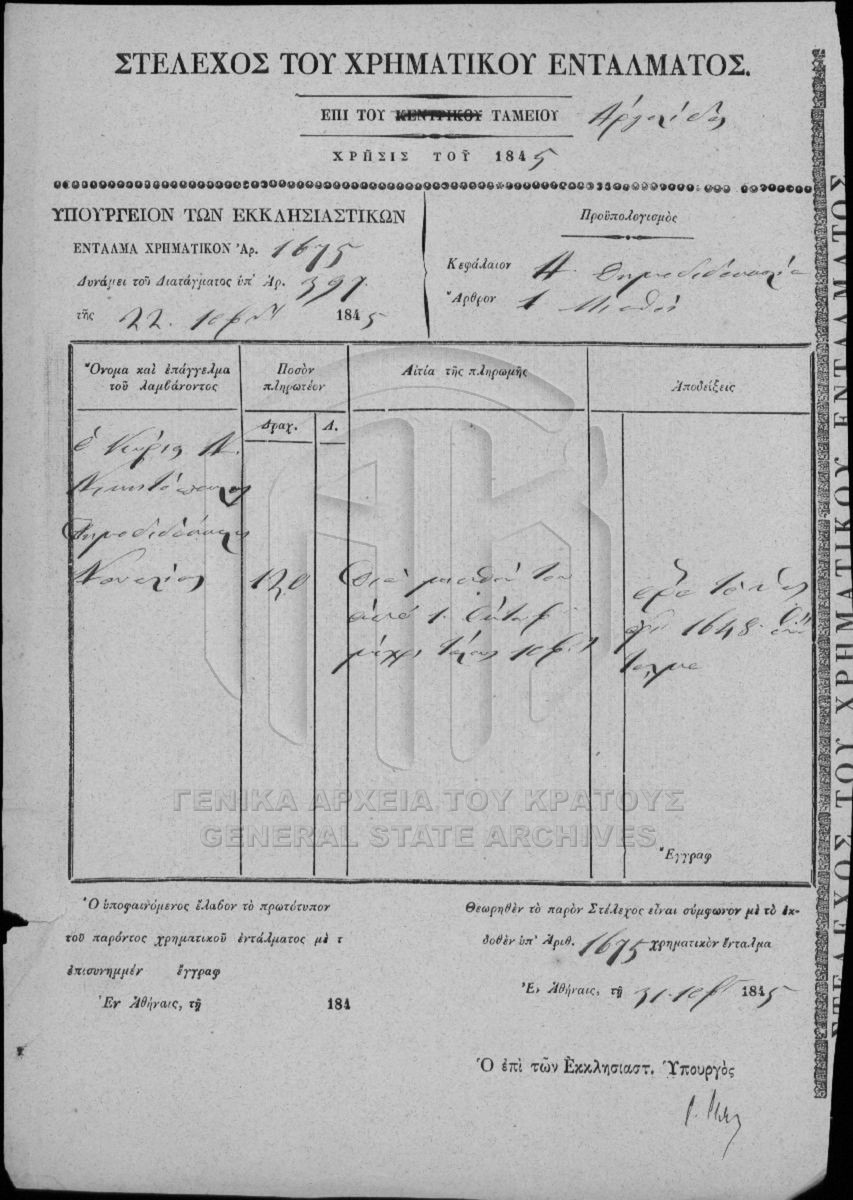 ΣΤΕΛΕΧΟΣ ΤΟΥ ΧΡΗΜΑΤΙΚΟΥ ΕΝΤΑΛΜΑΤΟΣ.
ΕΠΙ ΤΟΥ ΚΕΝΤΡΙΚΟΥ ΤΑΜΕΙΟΥ Ἀργολίδος
ΧΡΗΣΙΣ ΤΟΥ͂ 1845
ΥΠΟΥΡΓΕΙΟΝ ΤΩΝ ΕΚΚΛΗΣΙΑΣΤΙΚΩΝ
ΕΝΤΑΛΜΑ ΧΡΗΜΑΤΙΚΟΝ Ἀρ. 1675
Δυνάμει τοῦ Διατάγματος ὑπ' Ἀρ. 397.
τῆς 22. 10βρ 1845
Προϋπολογισμὸς
Κεφάλαιον Δημοδιδασκαλία
Ἄρθρον 1 Μισθοί
Ὄνομα καὶ ἐπάγγελμα
τοῦ λαμβάνοντος
Ποσὸν
πληρωτέον
Δραχ. Λ.
Αἰτία τῆς πληρωμῆς
Ἀποδείξεις
ὁ Κύριος
Δημοδιδάσκαλος
120
διὰ μισθόν του
ἀπὸ 1.
μέχρι τέλους 10βρ
1648.
Ἔγγραφ
ΓΕΝΙΚΑ ΑΡΧΕΙΑ ΤΟΥ ΚΡΑΤΟΥΣ
GENERAL STATE ARCHIVES
Ὁ ὑποφαινόμενος ἔλαβον τὸ πρωτότυπον
τοῦ παρόντος χρηματικοῦ ἐντάλματος μὲ τ
ἐπισυνημμέν ἔγγραφ
Ἐν Ἀθήναις, τῇ 184
Θεωρηθὲν τὸ παρὸν Στέλεχος εἶναι σύμφωνον μὲ τὸ ἐκ-
δοθὲν ὑπ' Ἀριθ. 1675 χρηματικὸν ἔνταλμα
Ἐν Ἀθήναις, τῇ 31. 10βρ 1845
Ὁ ἐπὶ τῶν Ἐκκλησιαστ. Ὑπουργὸς
ΣΤΕΛΕΧΟΣ ΤΟΥ ΧΡΗΜΑΤΙΚΟΥ ΕΝΤΑΛΜΑΤΟΣ